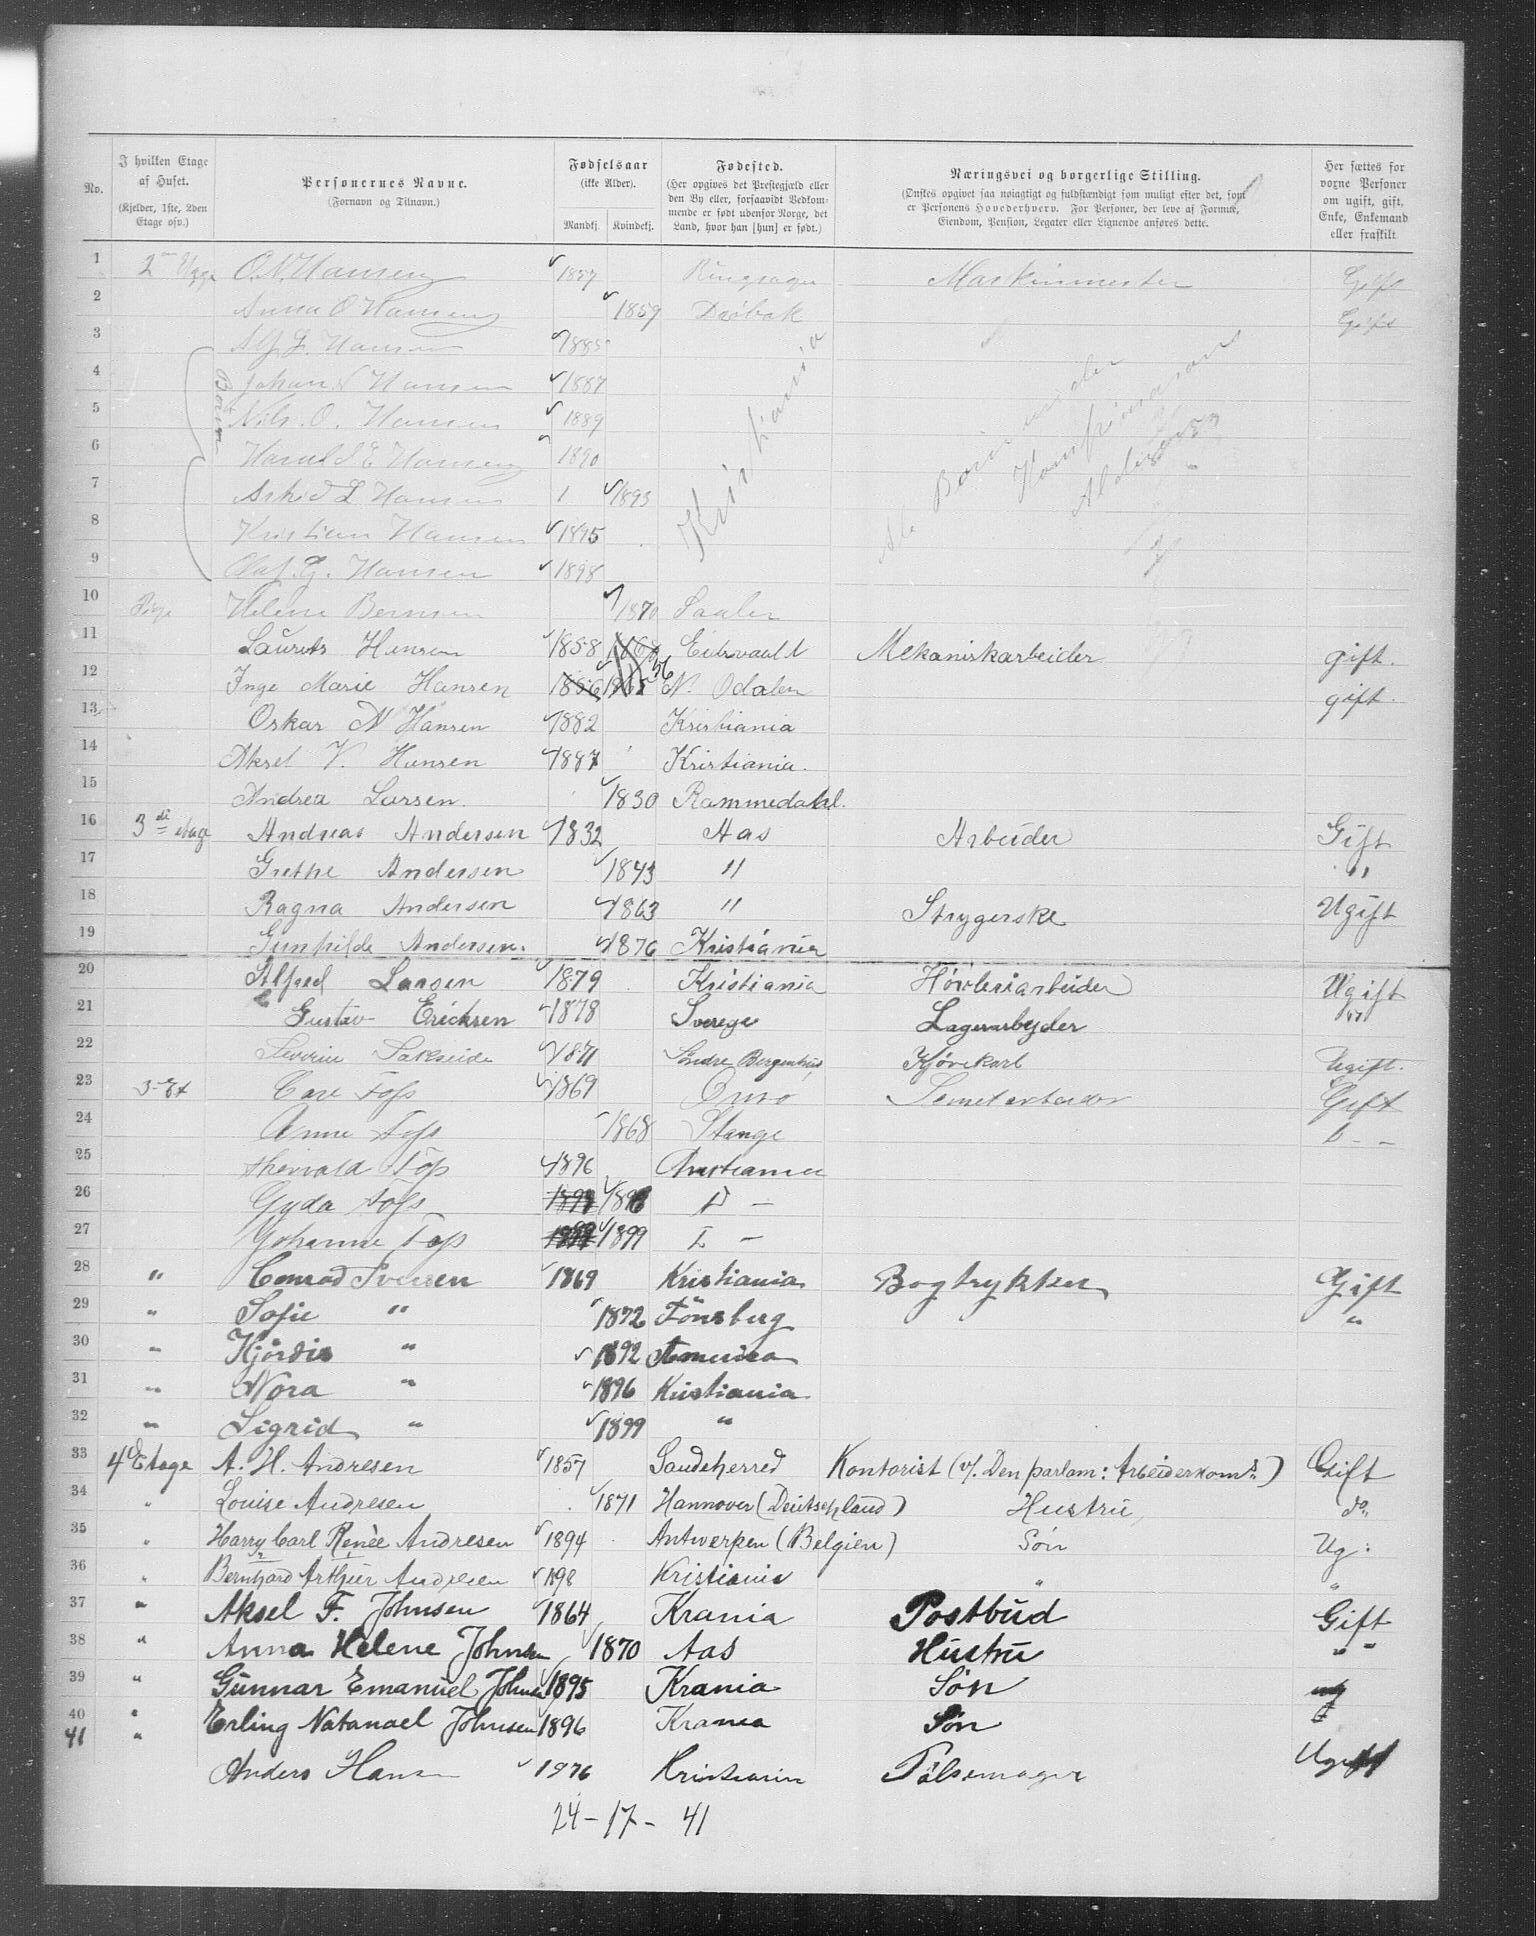 No. I hvilken Etage af Huset. (Kjelder, 1ste, 2den Etage osv.) Personernes Navne. (Fornavn og Tilnavn.) Fødselsaar (ikke Alder). Mandkj. Kvindekj. Fødested. (Her opgives det Prestegjæld eller den By eller, forsaavidt Vedkommende er født udenfor Norge, det Land, hvor han [hun] er født.) Næringsvei og borgerlige Stilling. (Ønskes opgivet saa nøiagtigt og fuldstændigt som muligt efter det, som er Personens Hovederhverv. For Personer, der leve af Formue, Eiendom, Pension, Legater eller Lignende anføres dette. Her sættes for voxne Personer om ugift, gift, Enke, Enkemand eller fraskilt
1 2 Etage O. N Hansen 1857 Ringsager Maskinmester Gift
2 Anna O Hansen 1859 Drøbak Gift
3 Alf L. Hansen 1885
4 Johan N Hansen 1887
5 Nils. O. Hansen 1889
6 Harald E Hansen 1890
7 L Hansen 1 1893
8 Kristian Hansen 1895
9 Olaf. G. Hansen 1898
Børn Kristiania
10 Pige Helene Bernsen 1870
11 Laurits Hansen 1858 1868 Eidsvauld Mekaniskarbeider gift.
12 Inge Marie Hansen 1856 56 N. Odalen gift.
13 Oskar N Hansen 1882 Kristiania
14 Aksel V. Hansen 1887 Kristiania.
15 Andrea Larsen. 1830 Rammedahl.
16 3die etage Andreas Andersen 1832 Aas Arbeider Gift
17 Grethe Andersen 1843 " "
18 Ragna Andersen 1863 " Strygerske Ugift
19 Gunhilde Andersen. 1876 Kristiania
20 Alfred Larsen 1879 Kristiania Høvleriarbeider Ugift
21 Gustav Ericksen 1878 Sverege Lagerarbejder "
22 Severin 1871 Søndre Bergenhus Kjørekarl Ugift.
23 3-Et Carl Foss 1869 Gift
24 Anne Foss 1868 Stange D - -
25 Thorvald Foss 1896 Christiania
26 Gyda Foss 1898 D -
27 Johanne Foss 1899 D -
28 " Conrad Iversen 1869 Kristiania Bogtrykker Gift
29 " Sofie " 1872 Tönsberg "
30 " Hjördis " 1892 America
31 " Nora " 1896 Kristiania
32 " Sigrid " 1899 "
33 4 Etage A. H. Andresen 1857 Saudeherred Kontorist (v/. Den parlam: Arbeiderkoms.) Gift
34 " Louise Andresen 1871 Hannover (Deutschland) Hustru do
35 " Harry Carl Renèe Andresen 1894 Antwerpen (Belgien) Søn Ug.
36 " Bernhard Arthur Andresen 1898 Kristiania " "
37 " Aksel F. Johnsen 1864 Krania Postbud Gift
38 " Anna Helene Johnsen 1870 Aas Hustru "
39 " Gunnar Emanuel Johnsen 1895 Krania Søn ug
40 " Erling Natanael Johnsen 1896 Krania Søn "
41 " Anders Hansen 1976 Kristiania Pølsemager Ugift
24 - 17 - 41